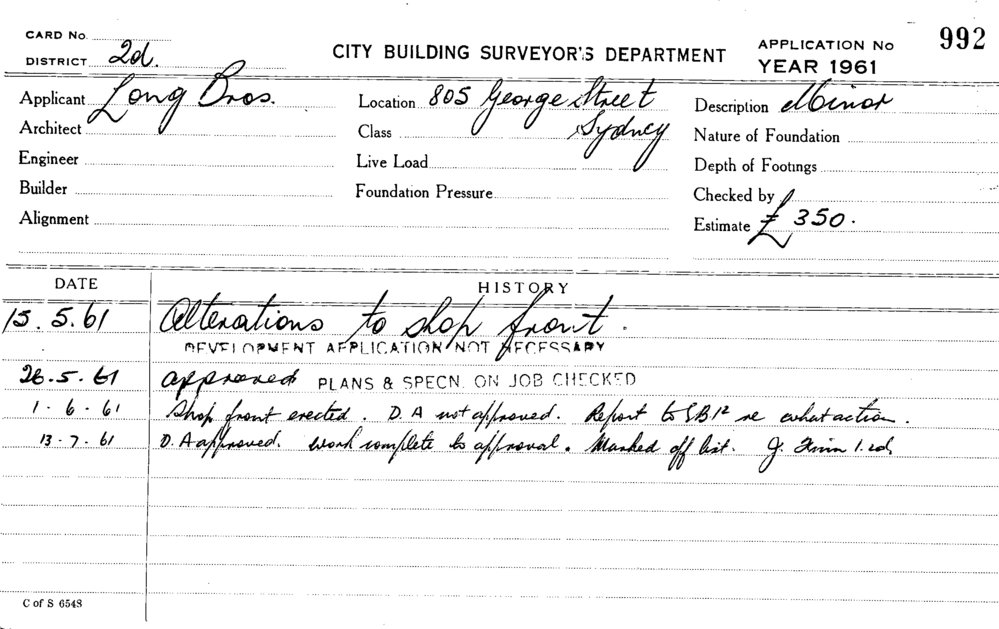 CARD No. APPLICATION No 992
DISTRICT 2d. CITY BUILDING SURVEYOR'S DEPARTMENT YEAR 1961
Applicant Long Bros. Location 805 George Street Description Minor
Architect Class Sydney Nature of Foundation
Engineer Live Load Depth of Footings
Builder Foundation Pressure Checked by
Alignment Estimate £350.
DATE HISTORY
15.5.61 Alterations to shop front.
DEVELOPMENT APPLICATION NOT NECESSARY
26.5.61 approved PLANS & SPECN. ON JOB CHECKED
1.6.61 Shop front erected. D.A not approved. Report to SB re what action.
13.7.61 D.A approved. Work complete to approval. Marked off list. J.
C of S 6548